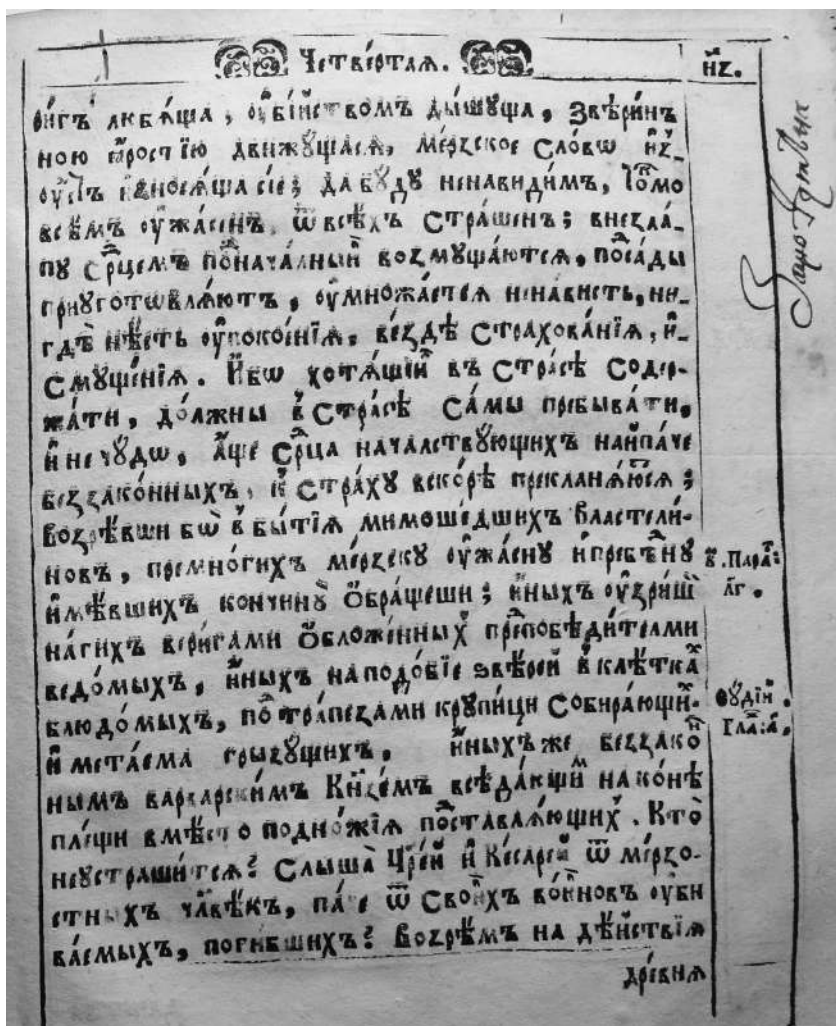 Четве́ртаѧ. н҃з.
ѻ́гнь ꙗ҆кѡ
ною ꙗ҆́ростїю дви́жꙋщаѧсѧ, ме́рзское сло́вѡ и҆з̾
ᲂу҆́стъ и҆зносѧ́ща сїе́; да бꙋ́дꙋ ненави́димъ, то́кмо
всѣ̑мъ ᲂу҆жа́сенъ, ѿ всѣ́хъ стра́шенъ; внеза́-
пꙋ ср҃цемъ поⷣнача́лныⷯ возмꙋща́ютсѧ, поⷣса́ды
приᲂуготовлѧ́ютъ, ᲂу҆множа́етсѧ не́нависть, ни-
гдѣ̀ нѣ́сть ᲂу҆покое́нїѧ, вездѣ̀ страхова́нїѧ, и҆
смꙋще́нїѧ. И҆́бѡ хотѧ́щїи въ стра́сѣ содер-
жа́ти, до́лжны в̾ стра́сѣ са́мы пребыва́ти,
и҆ не чꙋ́дѡ, а҆́ще ср҃ца̀ нача́лствꙋющихъ наипа́че
беззако́нныхъ, к̾ стра́хꙋ вско́рѣ прекланѧ́ютсѧ;
воззрѣ́вши бѡ̀ в̾ бы́тїѧ мимоше́дшихъ власте́ли-
новъ, премно́гихъ ме́рзскꙋ ᲂу҆жа́снꙋ и҆ пребѣ́днꙋ
и҆мѣ́вшихъ кончи́нꙋ ѡ҆брѧ́щеши; и҆́ныхъ ᲂу҆́зриши
наги́хъ вери́гами ѡ҆бложе́нныхъ препобѣди́телами
ведо́мыхъ, и҆́ныхъ на подо́бїе ѕвѣре́й в̾ клѣ́ткаⷯ
блюдо́мыхъ, поⷣ тра́пезами крꙋпи́цы собира́ющиⷯ.
и҆ мета́ема грызꙋ́щихъ, и҆́ныхъ же беззако́н-
нымъ варва́рскимъ кн҃зе́мъ всѣда́ющиⷨ на ко́нѣ
пле́щи вмѣ́сто подно́жїѧ поⷣставлѧ́ющихъ. Кто̀
не ᲂу҆страши́тсѧ? Слы́ша цр҃е́й и҆ ке́сарей ѿ ме́рзо-
стныхъ чл҃вѣ́къ, па́че ѿ свои́хъ во́йновъ ᲂу҆би-
ва́емыхъ, поги́бшихъ? Воззрѣ́мъ на дѣ́йствїѧ
дре́внѧ
в҃. Параⷧ:
л҃г.
Сꙋді́й.
Гла́: а҃,